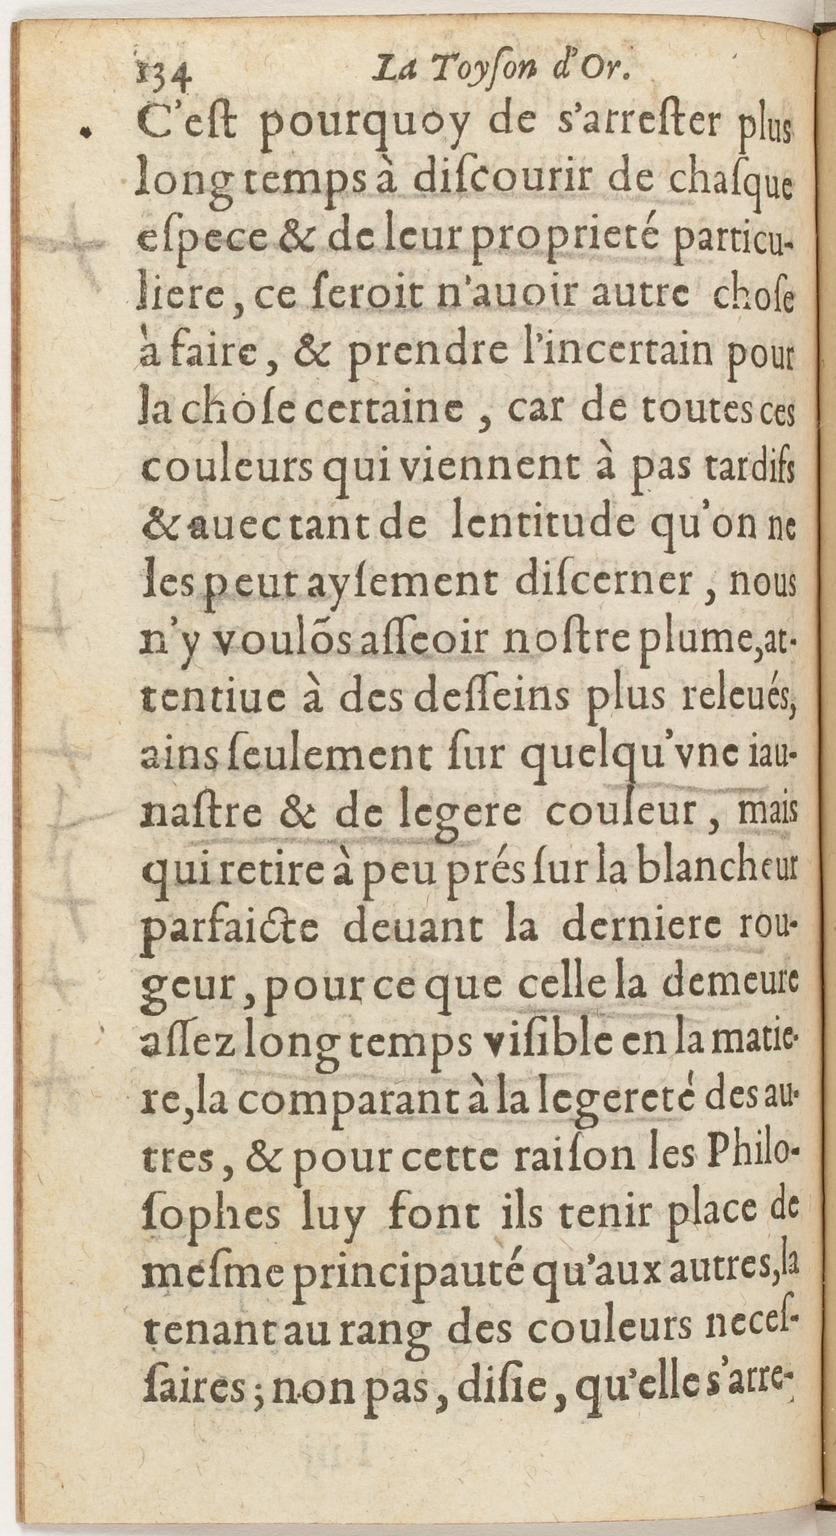 134 La Toyſon d'Or.
C'eſt pourquoy de s'arreſter plus
long temps à diſcourir de chaſque
eſpece & de leur proprieté particu-
liere, ce ſeroit n'auoir autre choſe
à faire, & prendre l'incertain pour
la choſe certaine, car de toutes ces
couleurs qui viennent à pas tardifs
& auec tant de lentitude qu'on ne
les peut ayſement diſcerner, nous
n'y voulõs aſſeoir noſtre plume, at-
tentiue à des deſſeins plus releués,
ains ſeulement ſur quelqu'vne iau-
naſtre & de legere couleur, mais
qui retire à peu prés ſur la blancheur
parfaicte deuant la derniere rou-
geur, pource que celle la demeure
aſſez long temps viſible en la matie-
re, la comparant à la legereté des au-
tres, & pour cette raiſon les Philo-
ſophes luy font ils tenir place de
meſme principauté qu'aux autres, la
tenant au rang des couleurs neceſ-
ſaires; non pas, diſie, qu'elle s'arre-